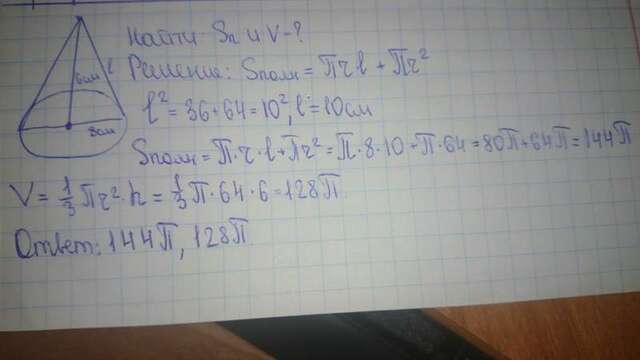 Найти Sп и V-?
Решение: Sполн = Πrl + Πr²
6см
l
8см
l² = 36 + 64 = 10², l = 10см
Sполн = Π·r·l + Πr² = Π·8·10 + Π·64 = 80Π + 64Π = 144Π
V = 1/3 Πr²·h = 1/3 Π·64·6 = 128Π
Ответ: 144Π, 128Π